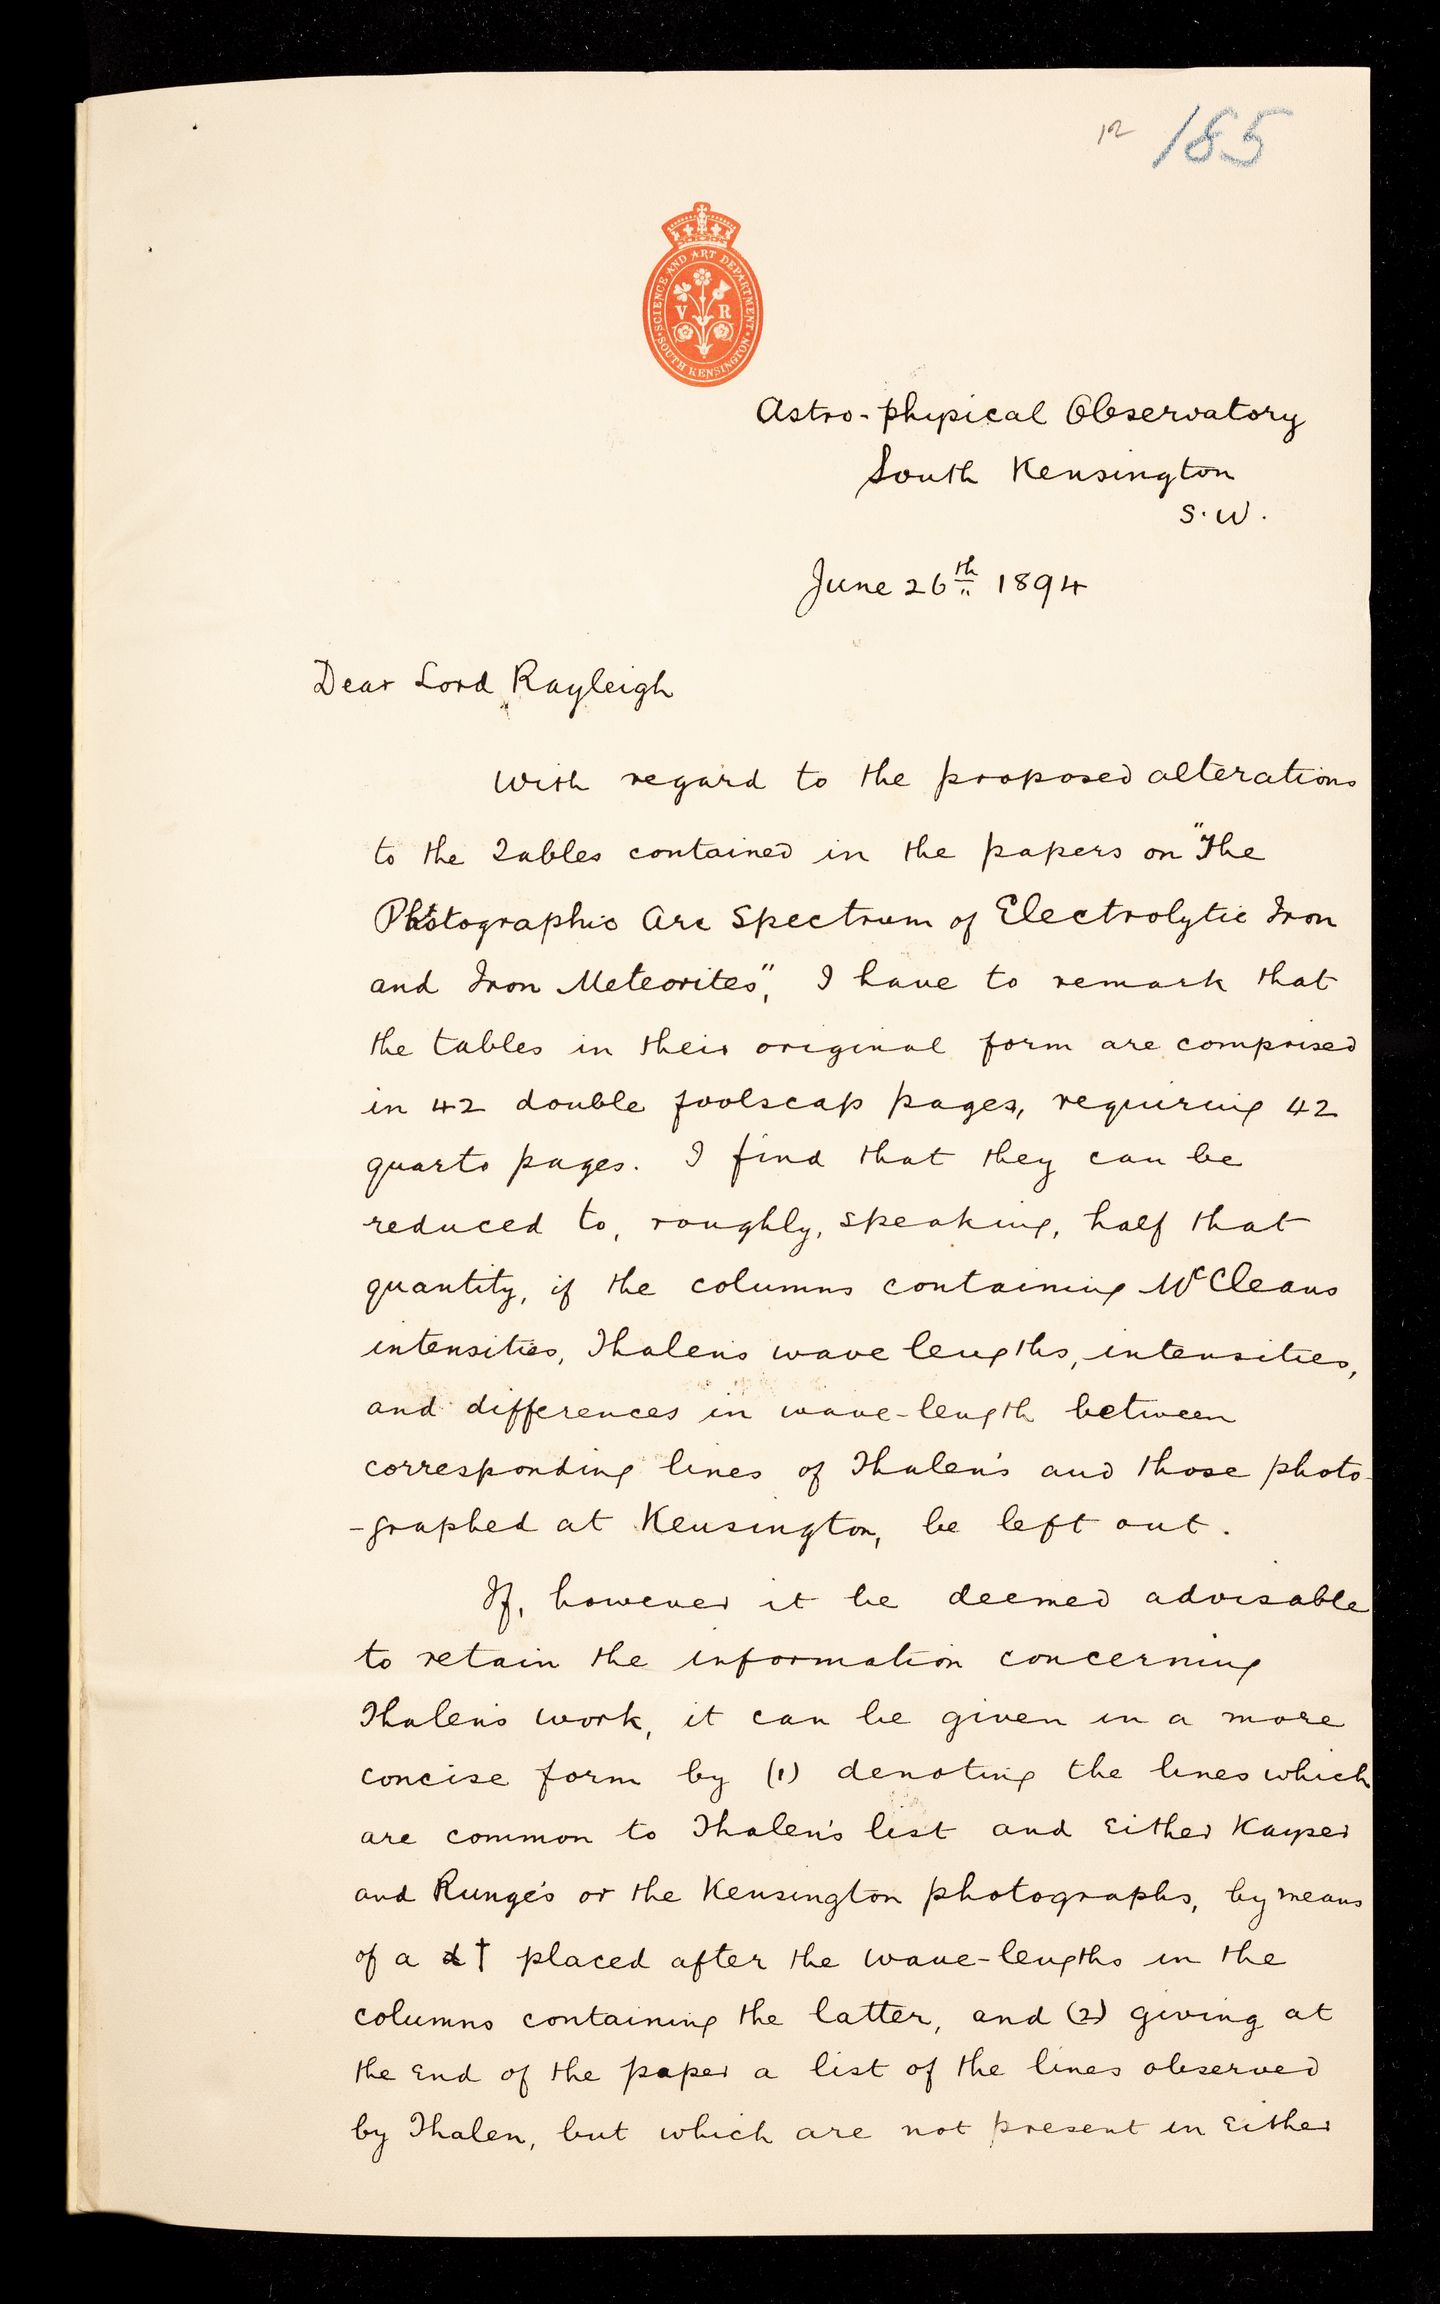 12 185
SCIENCE AND ART DEPARTMENT
V R
SOUTH KENSINGTON
Astro-physical Observatory
South Kensington
S.W.
June 26th 1894
Dear Lord Rayleigh
With regard to the proposed alterations
to the Tables contained in the papers on "The
Photographic Arc Spectrum of Electrolytic Iron
and Iron Meteorites", I have to remark that
the tables in their original form are comprised
in 42 double foolscap pages, requiring 42
quarto pages. I find that they can be
reduced to, roughly, speaking, half that
quantity, if the columns containing McCleans
intensities, Thalen's wave lengths, intensities,
and differences in wave-length between
corresponding lines of Thalen's and those photo-
-graphed at Kensington, be left out.
If, however it be deemed advisable
to retain the information concerning
Thalen's work, it can be given in a more
concise form by (1) denoting the lines which
are common to Thalen's list and either Kayser
and Runge's or the Kensington photographs, by means
of a † placed after the wave-lengths in the
columns containing the latter, and (2) giving at
the end of the paper a list of the lines observed
by Thalen, but which are not present in either